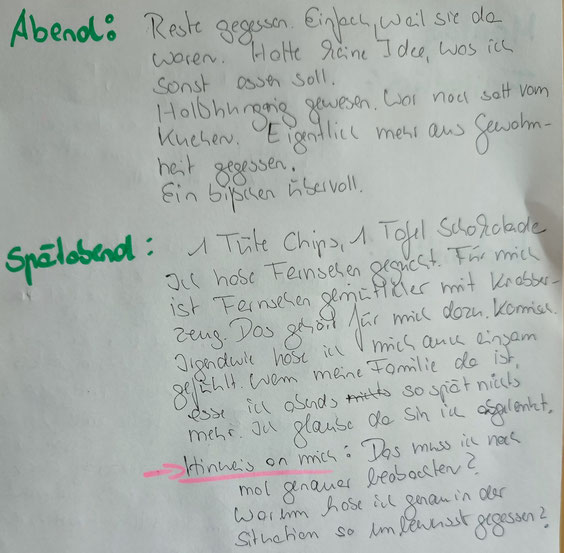 Abend: Reste gegessen. Einfach, weil sie da
waren. Hatte keine Idee, was ich
sonst essen soll.
Halbhungrig gewesen. War noch satt vom
Kuchen. Eigentlich mehr aus Gewohn-
heit gegessen.
Ein bißchen übervoll.
Spätabend: 1 Tüte Chips, 1 Tafel Schokolade
Ich habe Fernsehen geguckt. Für mich
ist Fernsehen gemütlicher mit Knabber-
zeug. Das gehört für mich dazu. Komisch.
Irgendwie habe ich mich auch einsam
gefühlt. Wenn meine Familie da ist,
esse ich abends nichts so spät nichts
mehr. Ich glaube da bin ich abgelenkt.
→ Hinweis an mich: Das muss ich noch
mal genauer beobachten?
Warum habe ich genau in der
Situation so unbewusst gegessen?